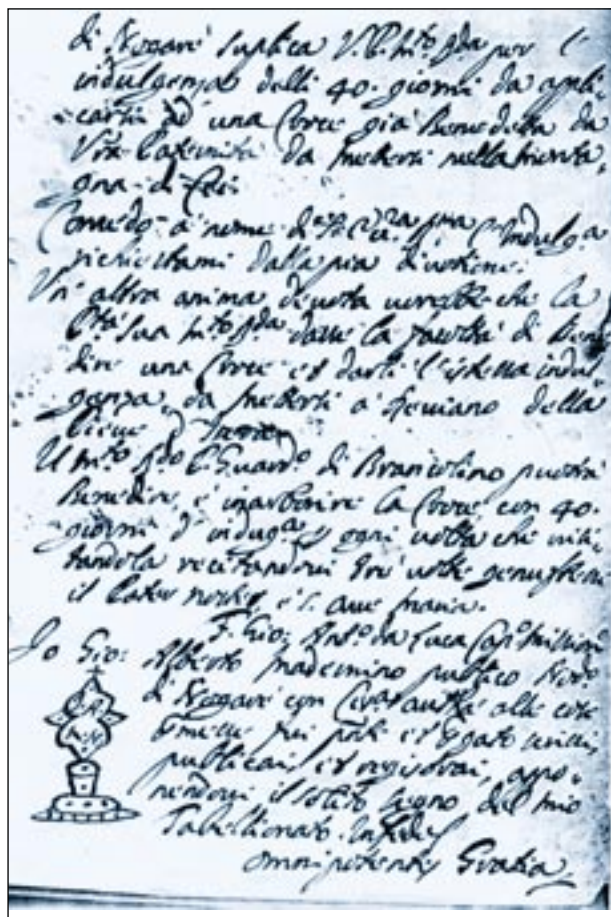 di Nogarè suplica V.P. M.to R.da per l'
indulgenza delli 40. giorni da apli,
carsi ad una Croce già Benedetta da
Vra Paternità da mettersi nella monta,
gna di Cei.
Concedo à nome di l' Indulg.a
richiestami dalla pia divotione.
Un' altra anima devota vorebbe che la
P.tà Sua M.to R.da dasse la facoltà di Bene
dire una Croce et darli l'istessa indul
genza, da mettersi à della
Pieve
Il M.to R.do P. Guard.o di Brancolino puotrà
Benedire, è inarborire la Croce con 40.
giorni d' indug.a ogni volta che visi,
tandola recitandoui tre volte genuflessi
il Pater noster, è l' aue maria.
F. Gio: Ant.o da Luca Cap.o Mission
Io Gio: Alberto Madernino publico Nod.o
di Nogarè con autt.à alle cose
et rogato scrissi,
publicai, et registrai, appo,
nendoui il solito segno del mio
Tabellionato. In fede
omnipotentis Gratia